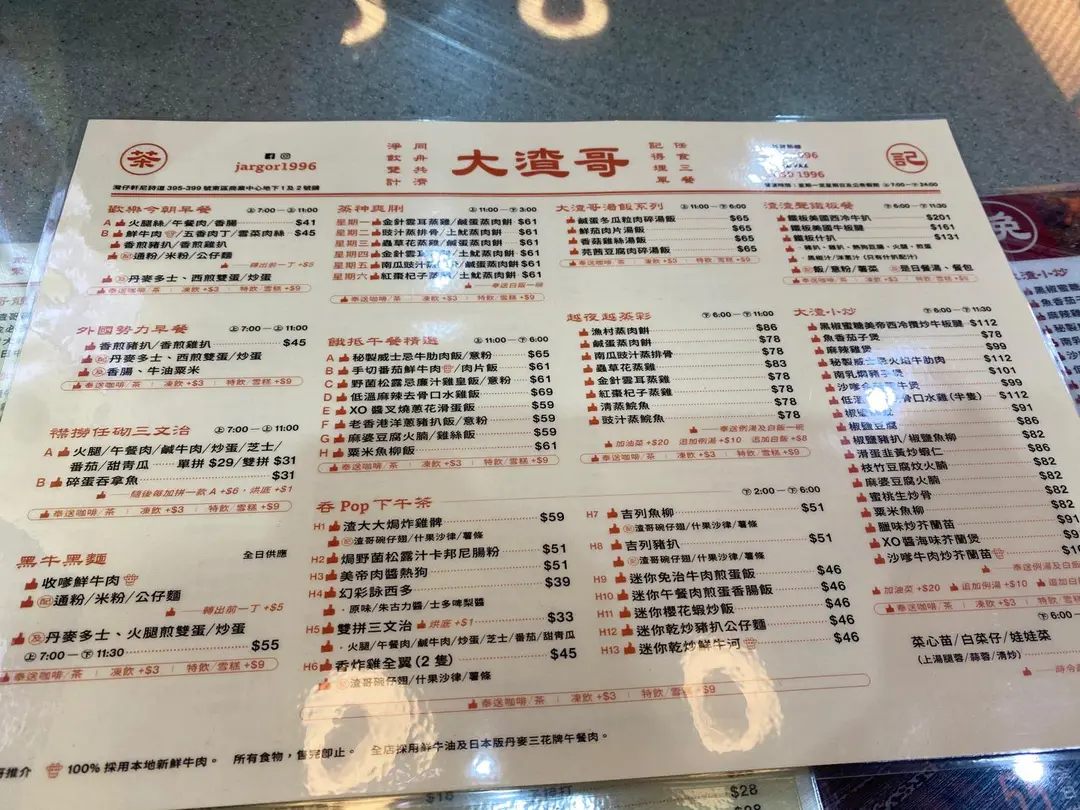 茶
jargor1996
淨飲雙計
同舟共濟
大渣哥
記得埋單
任食三餐
記
灣仔軒尼詩道 395-399 號東區商業中心地下 1 及 2 號舖
歡樂今朝早餐 上 7:00 — 上 11:00
A 火腿絲/午餐肉/香腸 $41
B 鮮牛肉/五香肉丁/雪菜肉絲 $45
香煎豬扒/香煎雞扒
配 通粉/米粉/公仔麵
轉出前一丁 +$5
及 丹麥多士、西煎雙蛋/炒蛋
奉送咖啡/茶 | 凍飲 +$3 | 特飲/雪糕 +$9
外國勢力早餐 上 7:00 — 上 11:00
香煎豬扒/香煎雞扒 $45
及 丹麥多士、西煎雙蛋/炒蛋
及 香腸、牛油粟米
奉送咖啡/茶 | 凍飲 +$3 | 特飲/雪糕 +$9
襟撈任砌三文治 上 7:00 — 上 11:00
A 火腿/午餐肉/鹹牛肉/炒蛋/芝士/
番茄/甜青瓜 單拼 $29/雙拼 $31
B 碎蛋吞拿魚 $31
隨後每加拼一款 A +$6，烘底 +$1
奉送咖啡/茶 | 凍飲 +$3 | 特飲/雪糕 +$9
黑牛黑麵 全日供應
收嗲鮮牛肉
配 通粉/米粉/公仔麵
轉出前一丁 +$5
及 丹麥多士、火腿煎雙蛋/炒蛋
上 7:00 — 下 11:30 $55
奉送咖啡/茶 | 凍飲 +$3 | 特飲/雪糕 +$9
蒸神爽脷 上 11:00 — 下 3:00
星期一 金針雲耳蒸雞/鹹蛋蒸肉餅 $61
星期二 豉汁蒸排骨/土魷蒸肉餅 $61
星期三 蟲草花蒸雞/鹹蛋蒸肉餅 $61
星期四 金針雲耳蒸雞/土魷蒸肉餅 $61
星期五 南瓜豉汁蒸排骨/鹹蛋蒸肉餅 $61
星期六 紅棗杞子蒸雞/土魷蒸肉餅 $61
奉送白飯一碗
奉送咖啡/茶 | 凍飲 +$3 | 特飲/雪糕 +$9
餓抵午餐精選 上 11:00 — 下 6:00
A 秘製威士忌牛肋肉飯/意粉 $65
B 手切番茄鮮牛肉/肉片飯 $61
C 野菌松露忌廉汁雞皇飯/意粉 $61
D 低溫麻辣去骨口水雞飯 $69
E XO 醬叉燒蔥花滑蛋飯 $59
F 老香港洋蔥豬扒飯/意粉 $59
G 麻婆豆腐火腩/雞絲飯 $59
H 粟米魚柳飯 $61
奉送咖啡/茶 | 凍飲 +$3 | 特飲/雪糕 +$9
大渣哥湯飯系列 上 11:00 — 下 6:00
鹹蛋冬瓜粒肉碎湯飯 $65
鮮茄肉片湯飯 $65
香菇雞絲湯飯 $65
芫茜豆腐肉碎湯飯 $65
奉送咖啡/茶 | 凍飲 +$3 | 特飲/雪糕 +$9
越夜越蒸彩 下 6:00 — 下 11:00
漁村蒸肉餅 $86
鹹蛋蒸肉餅 $78
南瓜豉汁蒸排骨 $78
蟲草花蒸雞 $83
金針雲耳蒸雞 $78
紅棗杞子蒸雞 $78
清蒸鯇魚 $78
豉汁蒸鯇魚 $78
奉送例湯及白飯一碗
加油菜 +$20 追加例湯 +$10 追加白飯 +$8
奉送咖啡/茶 | 凍飲 +$3 | 特飲/雪糕 +$9
渣渣聲鐵板餐 下 6:00 — 下 11:30
鐵板美國西冷牛扒 $201
鐵板美國牛板腱 $161
鐵板什扒 $131
配 飯/意粉/薯菜 及 是日餐湯、餐包
大渣小炒 下 6:00 — 下 11:30
黑椒蜜糖美帝西冷粒炒牛板腱 $112
魚香茄子煲 $78
麻辣雞煲 $99
$112
南乳燜豬手煲 $101
$99
$112
$91
椒鹽豆腐 $86
椒鹽豬扒/椒鹽魚柳 $82
滑蛋韭黃炒蝦仁 $86
枝竹豆腐炆火腩 $82
麻婆豆腐火腩 $82
蜜桃生炒骨
粟米魚柳 $82
臘味炒芥蘭苗
XO醬海味芥蘭苗
沙嗲牛肉炒芥蘭苗
奉送例湯及白飯
加油菜 +$20 追加例湯 +$10
奉送咖啡/茶 | 凍飲 +$3 | 特飲/雪糕 +$9
菜心苗/白菜仔/娃娃菜
吞 Pop 下午茶 下 2:00 — 下 6:00
H1 渣大大焗炸雞髀 $59
配 渣哥碗仔翅/什果沙律/薯條
H2 焗野菌松露汁卡邦尼腸粉 $51
H3 美帝肉醬熱狗 $51
H4 幻彩詠西多 $39
· 原味/朱古力醬/士多啤梨醬
H5 雙拼三文治 烘底 +$1 $33
· 火腿/午餐肉/鹹牛肉/炒蛋/芝士/番茄/甜青瓜
H6 香炸雞全翼(2 隻) $45
配 渣哥碗仔翅/什果沙律/薯條
H7 吉列魚柳 $51
配 渣哥碗仔翅/什果沙律/薯條
H8 吉列豬扒 $51
配 渣哥碗仔翅/什果沙律/薯條
H9 迷你免治牛肉煎蛋飯 $46
H10 迷你午餐肉煎蛋香腸飯 $46
H11 迷你櫻花蝦炒飯 $46
H12 迷你乾炒豬扒公仔麵 $46
H13 迷你乾炒鮮牛河 $46
奉送咖啡/茶 | 凍飲 +$3 | 特飲/雪糕 +$9
哥推介 100% 採用本地新鮮牛肉。 所有食物，售完即止。 全店採用鮮牛油及日本版丹麥三花牌午餐肉。
$28